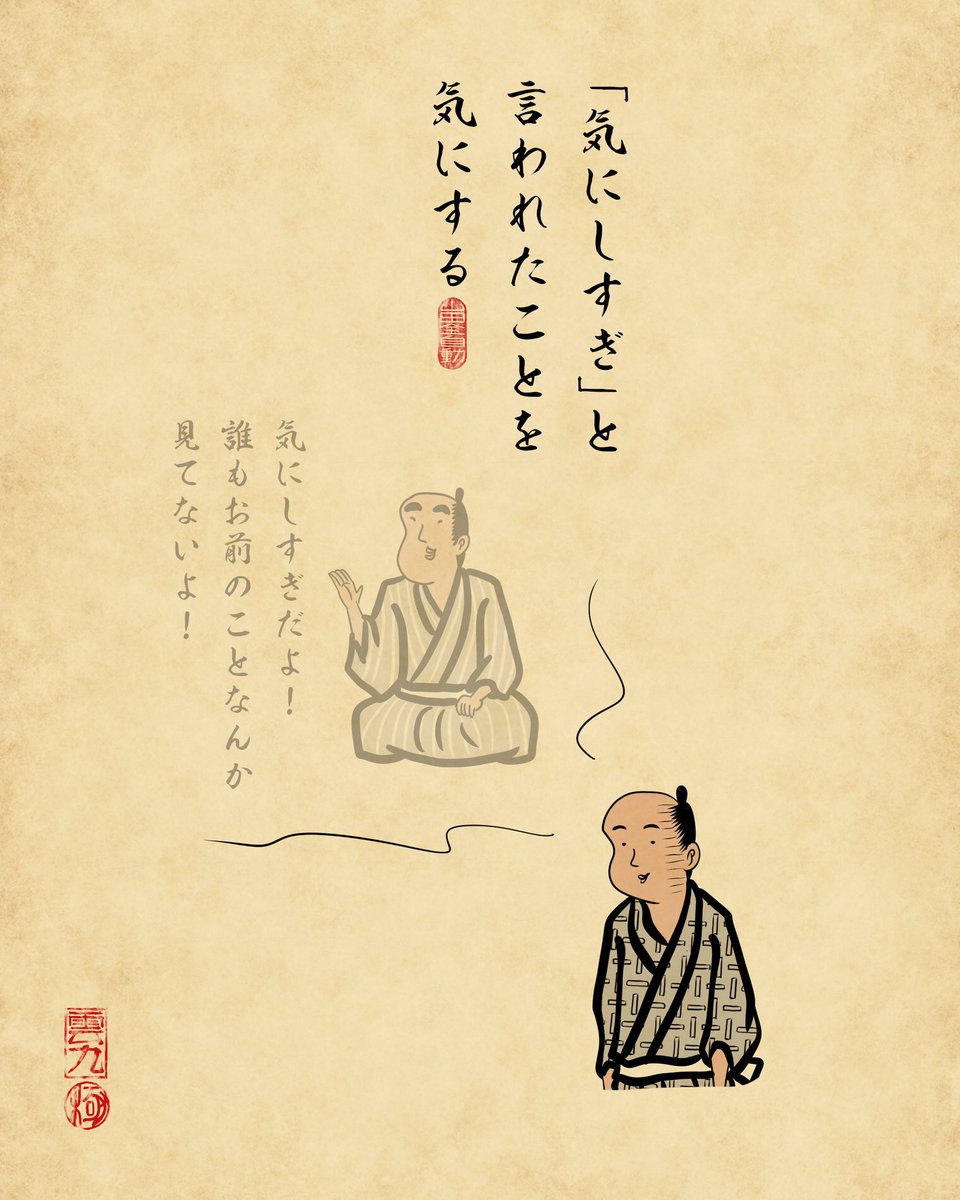 「気にしすぎ」と
言われたことを
気にする
気にしすぎだよ！
誰もお前のことなんか
見てないよ！